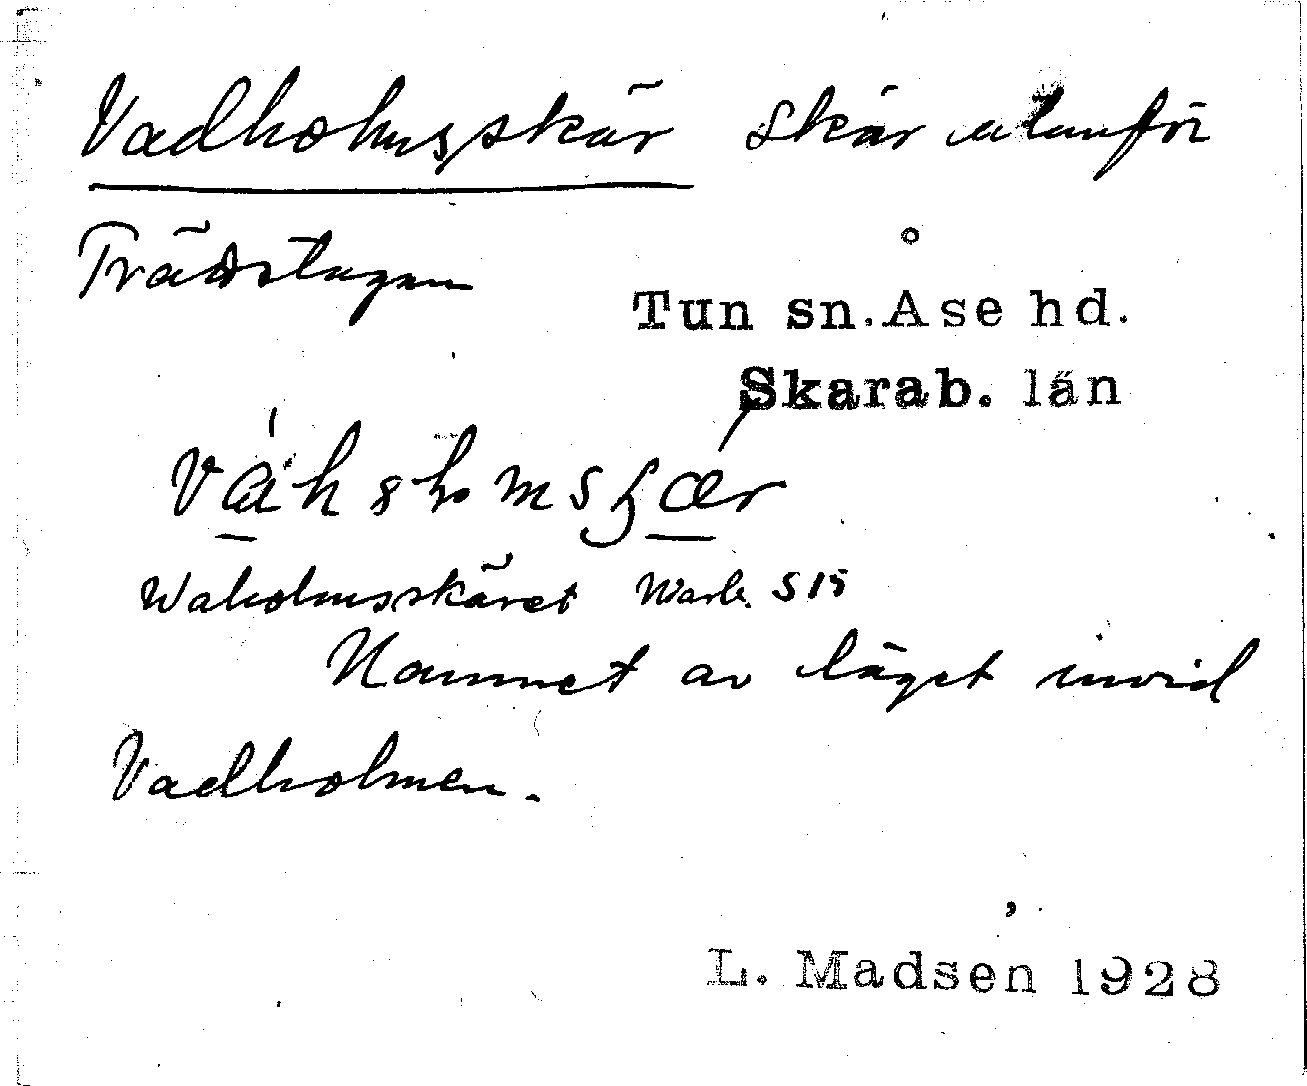 Vadholmsskär skär utanför
Trädstugan
Tun sn. Åse hd.
Skarab. län
Waholmsskäret Marb. S 15
Namnet av läget invid
Vadholmen.
L. Madsen 1928